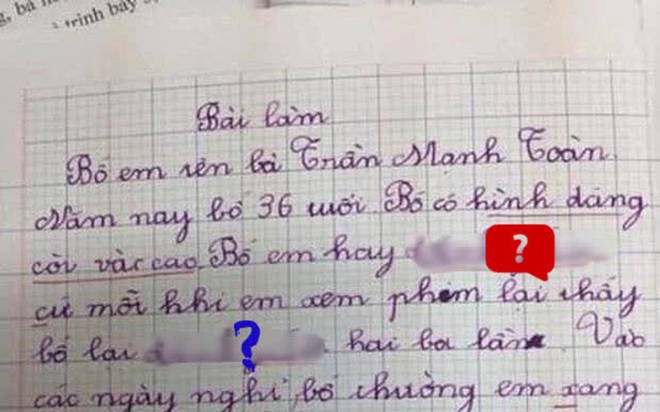 g, bà h
trình bày
Bài làm
Bố em tên là Trần Mạnh Toàn.
Năm nay bố 36 tuổi. Bố có hình dáng
còi và cao. Bố em hay
?
cứ mỗi khi em xem phim lại thấy
bố lại
?
hai ba lần. Vào
các ngày nghỉ, bố thường em sang